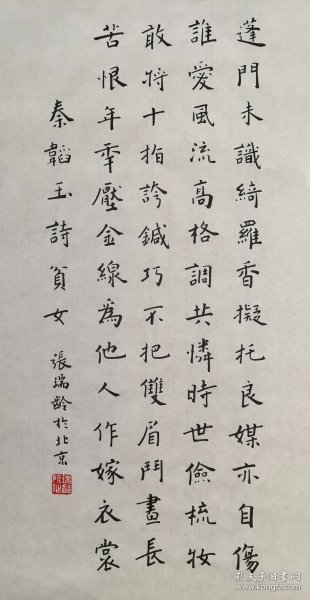 蓬門未識綺羅香擬托良媒亦自傷
誰愛風流高格調共憐時世儉梳妝
敢将十指誇鍼巧不把雙眉鬥畫長
苦恨年秊壓金線為他人作嫁衣裳
秦韜玉詩貧女 張瑞齡於北京
孔夫子旧书网